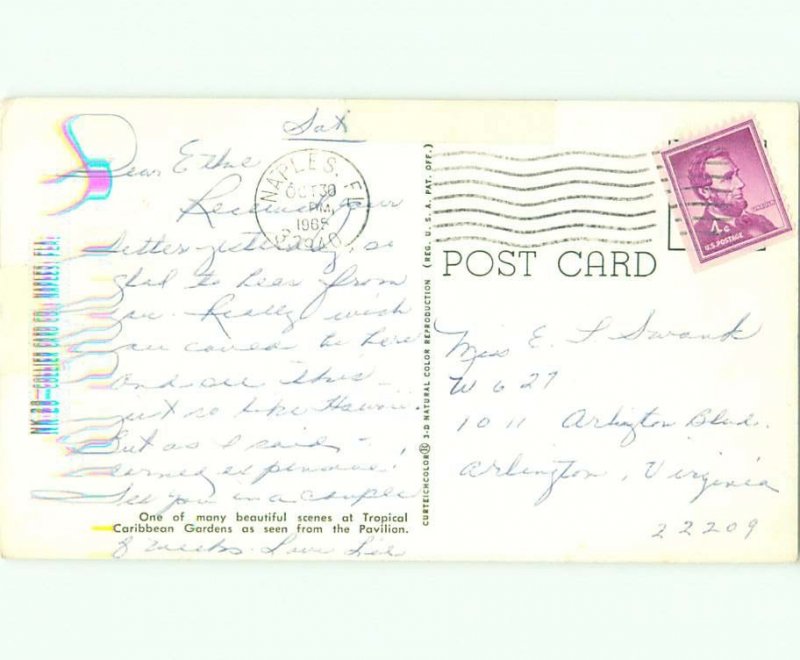 Sat
Dear Ethel
Received your
letter yesterday so
glad to hear from
you. Really wish
you could be here
and see this
just so like Hawaii.
But as I said
See you in a couple
of weeks. Love
NAPLES, FL
OCT 30
PM
33940
NK-28—COLLIER CARD CO., NAPLES, FLA.
One of many beautiful scenes at Tropical
Caribbean Gardens as seen from the Pavilion.
CURTEICHCOLOR® 3-D NATURAL COLOR REPRODUCTION (REG. U. S. A. PAT. OFF.)
POST CARD
LINCOLN
4¢
U.S. POSTAGE
Miss E. L Swank
W 627
1011 Arlington Blvd.
Arlington, Virginia
22209